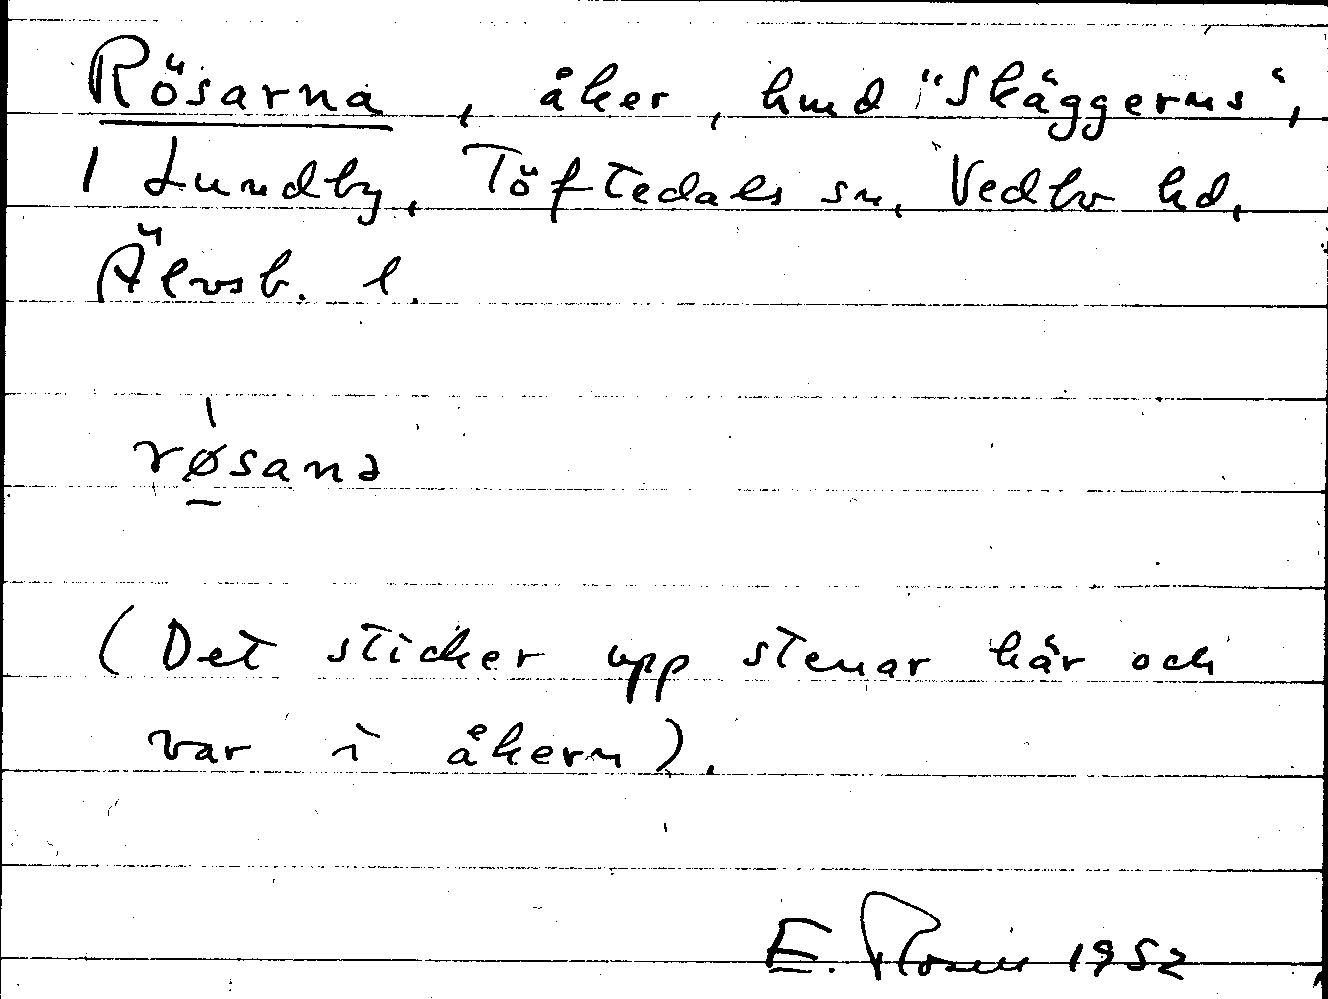 Rösarna, åker, hmd "Skäggerns",
1 Lundby, Töftedals sn, Vedbo hd,
Älvsb. l.
røsanə
(Det sticker upp stenar här och
var i åkern).
E. 1952